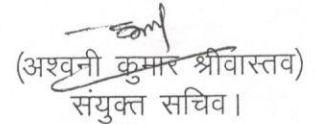 (अश्वनी कुमार श्रीवास्तव)
संयुक्त सचिव।